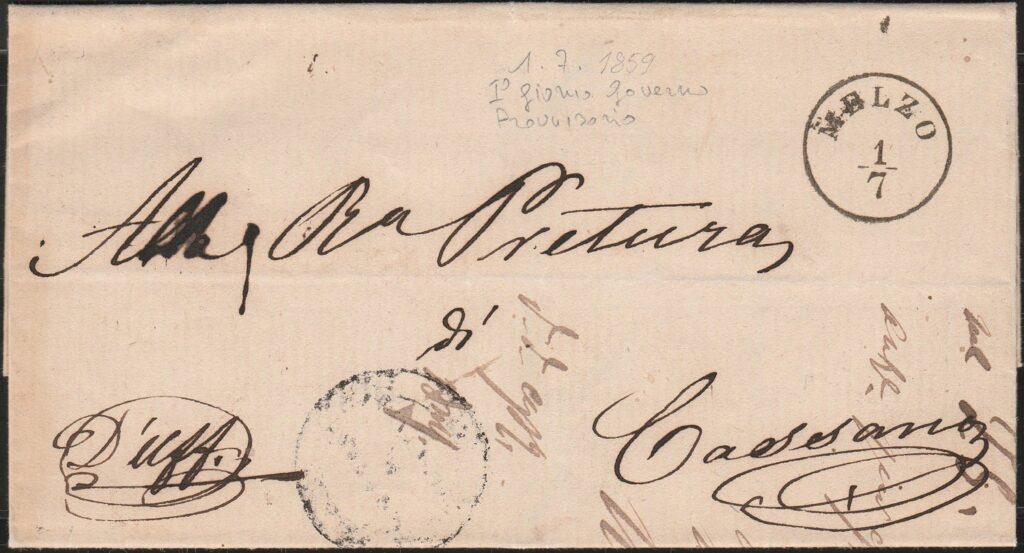 1. 7. 1859
I° giorno Governo
Provvisorio
MELZO
1
7
Alla Ra Pretura
di
D'uff.
Cassano